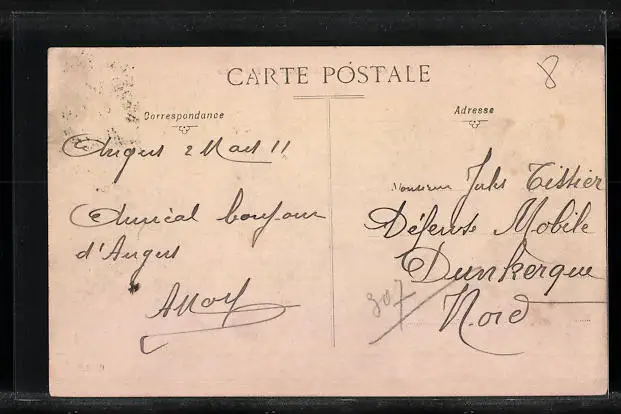 CARTE POSTALE
8
Correspondance
Adresse
Angers 2 Mars 11
Amical bonjour
d'Angers
Monsieur Jules Tissier
Défense Mobile
Dunkerque
Nord
307